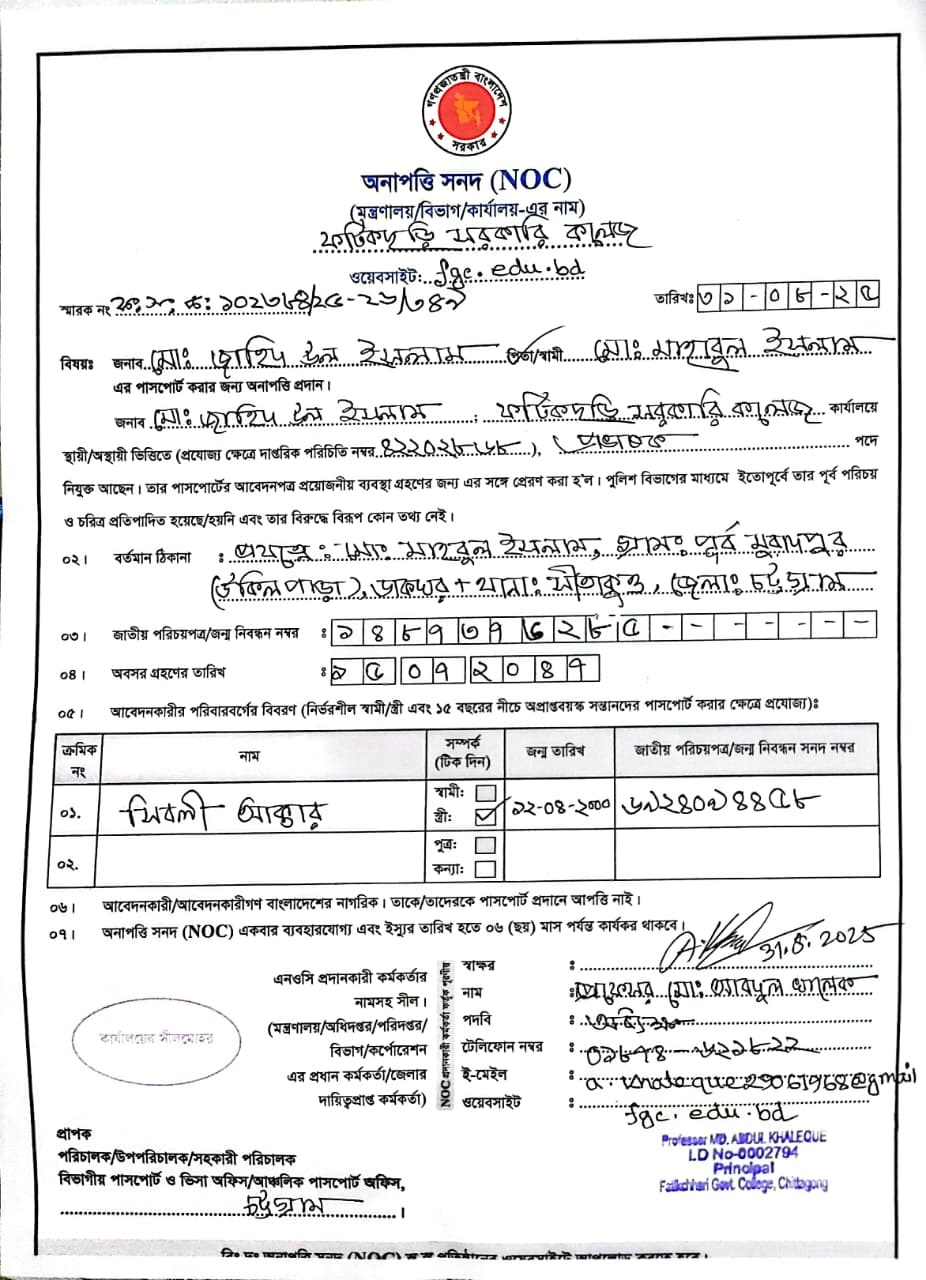 গণপ্রজাতন্ত্রী বাংলাদেশ
সরকার
অনাপত্তি সনদ (NOC)
(মন্ত্রণালয়/বিভাগ/কার্যালয়-এর নাম)
ফটিকছড়ি সরকারি কলেজ
ওয়েবসাইট: fgc.edu.bd
স্মারক নং
তারিখঃ ৩১-০৮-২৫
বিষয়ঃ জনাব মোঃ জাহিদ উল ইসলাম পিতা/স্বামী মোঃ মাহাবুল ইসলাম
এর পাসপোর্ট করার জন্য অনাপত্তি প্রদান।
জনাব মোঃ জাহিদ উল ইসলাম, ফটিকছড়ি সরকারি কলেজ কার্যালয়ে
স্থায়ী/অস্থায়ী ভিত্তিতে (প্রযোজ্য ক্ষেত্রে দাপ্তরিক পরিচিতি নম্বর), প্রভাষক পদে
নিযুক্ত আছেন। তার পাসপোর্টের আবেদনপত্র প্রয়োজনীয় ব্যবস্থা গ্রহণের জন্য এর সঙ্গে প্রেরণ করা হ'ল। পুলিশ বিভাগের মাধ্যমে ইতোপূর্বে তার পূর্ব পরিচয়
ও চরিত্র প্রতিপাদিত হয়েছে/হয়নি এবং তার বিরুদ্ধে বিরূপ কোন তথ্য নেই।
০২। বর্তমান ঠিকানা : প্রযত্নে: মোঃ মাহাবুল ইসলাম, গ্রামঃ পূর্ব মুরাদপুর
(উকিলপাড়া), ডাকঘর + থানাঃ সীতাকুণ্ড, জেলাঃ চট্টগ্রাম
০৩। জাতীয় পরিচয়পত্র/জন্ম নিবন্ধন নম্বর :
০৪। অবসর গ্রহণের তারিখ : ১৫০৭২০৪৭
০৫। আবেদনকারীর পরিবারবর্গের বিবরণ (নির্ভরশীল স্বামী/স্ত্রী এবং ১৫ বছরের নীচে অপ্রাপ্তবয়স্ক সন্তানদের পাসপোর্ট করার ক্ষেত্রে প্রযোজ্য)ঃ
ক্রমিক নং নাম সম্পর্ক (টিক দিন) জন্ম তারিখ জাতীয় পরিচয়পত্র/জন্ম নিবন্ধন সনদ নম্বর
০১. আক্তার স্বামীঃ স্ত্রীঃ ১২-০৪-২০০০
০২. পুত্রঃ কন্যাঃ
০৬। আবেদনকারী/আবেদনকারীগণ বাংলাদেশের নাগরিক। তাকে/তাদেরকে পাসপোর্ট প্রদানে আপত্তি নাই।
০৭। অনাপত্তি সনদ (NOC) একবার ব্যবহারযোগ্য এবং ইস্যুর তারিখ হতে ০৬ (ছয়) মাস পর্যন্ত কার্যকর থাকবে।
31.8.2025
এনওসি প্রদানকারী কর্মকর্তার
নামসহ সীল।
(মন্ত্রণালয়/অধিদপ্তর/পরিদপ্তর/
বিভাগ/কর্পোরেশন
এর প্রধান কর্মকর্তা/জেলার
দায়িত্বপ্রাপ্ত কর্মকর্তা)
NOC প্রদানকারী কর্মকর্তা কর্তৃক পূরণীয়
স্বাক্ষর :
নাম : প্রফেসর মোঃ আবদুল খালেক
পদবি : অধ্যক্ষ
টেলিফোন নম্বর :
ই-মেইল :
ওয়েবসাইট : fgc.edu.bd
কার্যালয়ের সীলমোহর
Professor MD. ABDUL KHALEQUE
LD No-0002794
Principal
Fatikchhari Govt. College, Chittagong
প্রাপক
পরিচালক/উপপরিচালক/সহকারী পরিচালক
বিভাগীয় পাসপোর্ট ও ভিসা অফিস/আঞ্চলিক পাসপোর্ট অফিস,
চট্টগ্রাম।